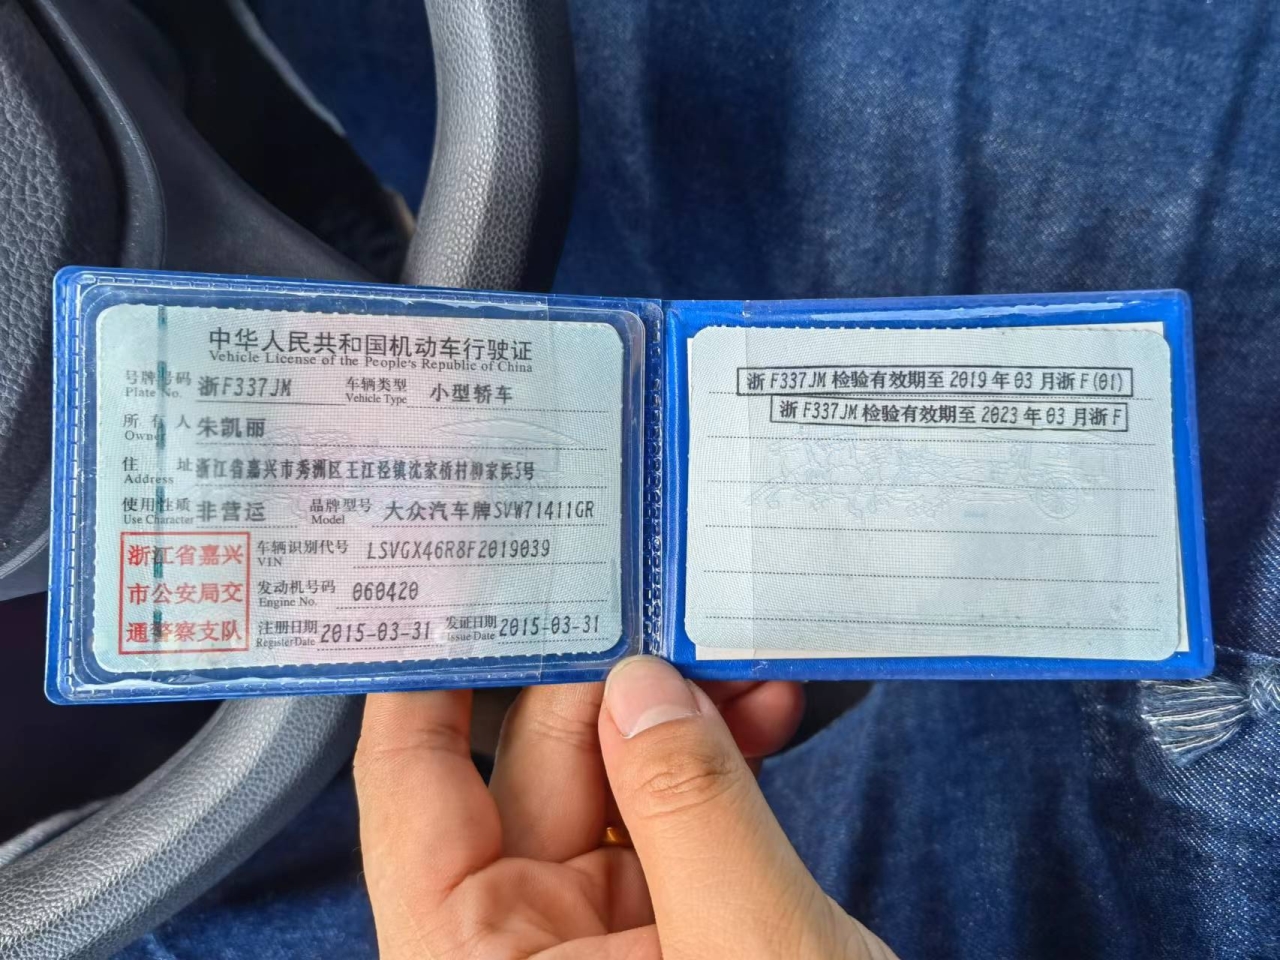 中华人民共和国机动车行驶证
Vehicle License of the People's Republic of China
号牌号码 浙F337JM 车辆类型 小型轿车
Plate No. Vehicle Type
所有人 朱凯丽
Owner
住址 浙江省嘉兴市秀洲区王江泾镇沈家桥村柳家浜5号
Address
使用性质 非营运 品牌型号 大众汽车牌SVW71411GR
Use Character Model
浙江省嘉兴
市公安局交
通警察支队
车辆识别代号 LSVGX46R8F2019039
VIN
发动机号码 060420
Engine No.
注册日期 2015-03-31 发证日期 2015-03-31
Register Date Issue Date
浙F337JM检验有效期至2019年03月浙F(01)
浙F337JM检验有效期至2023年03月浙F